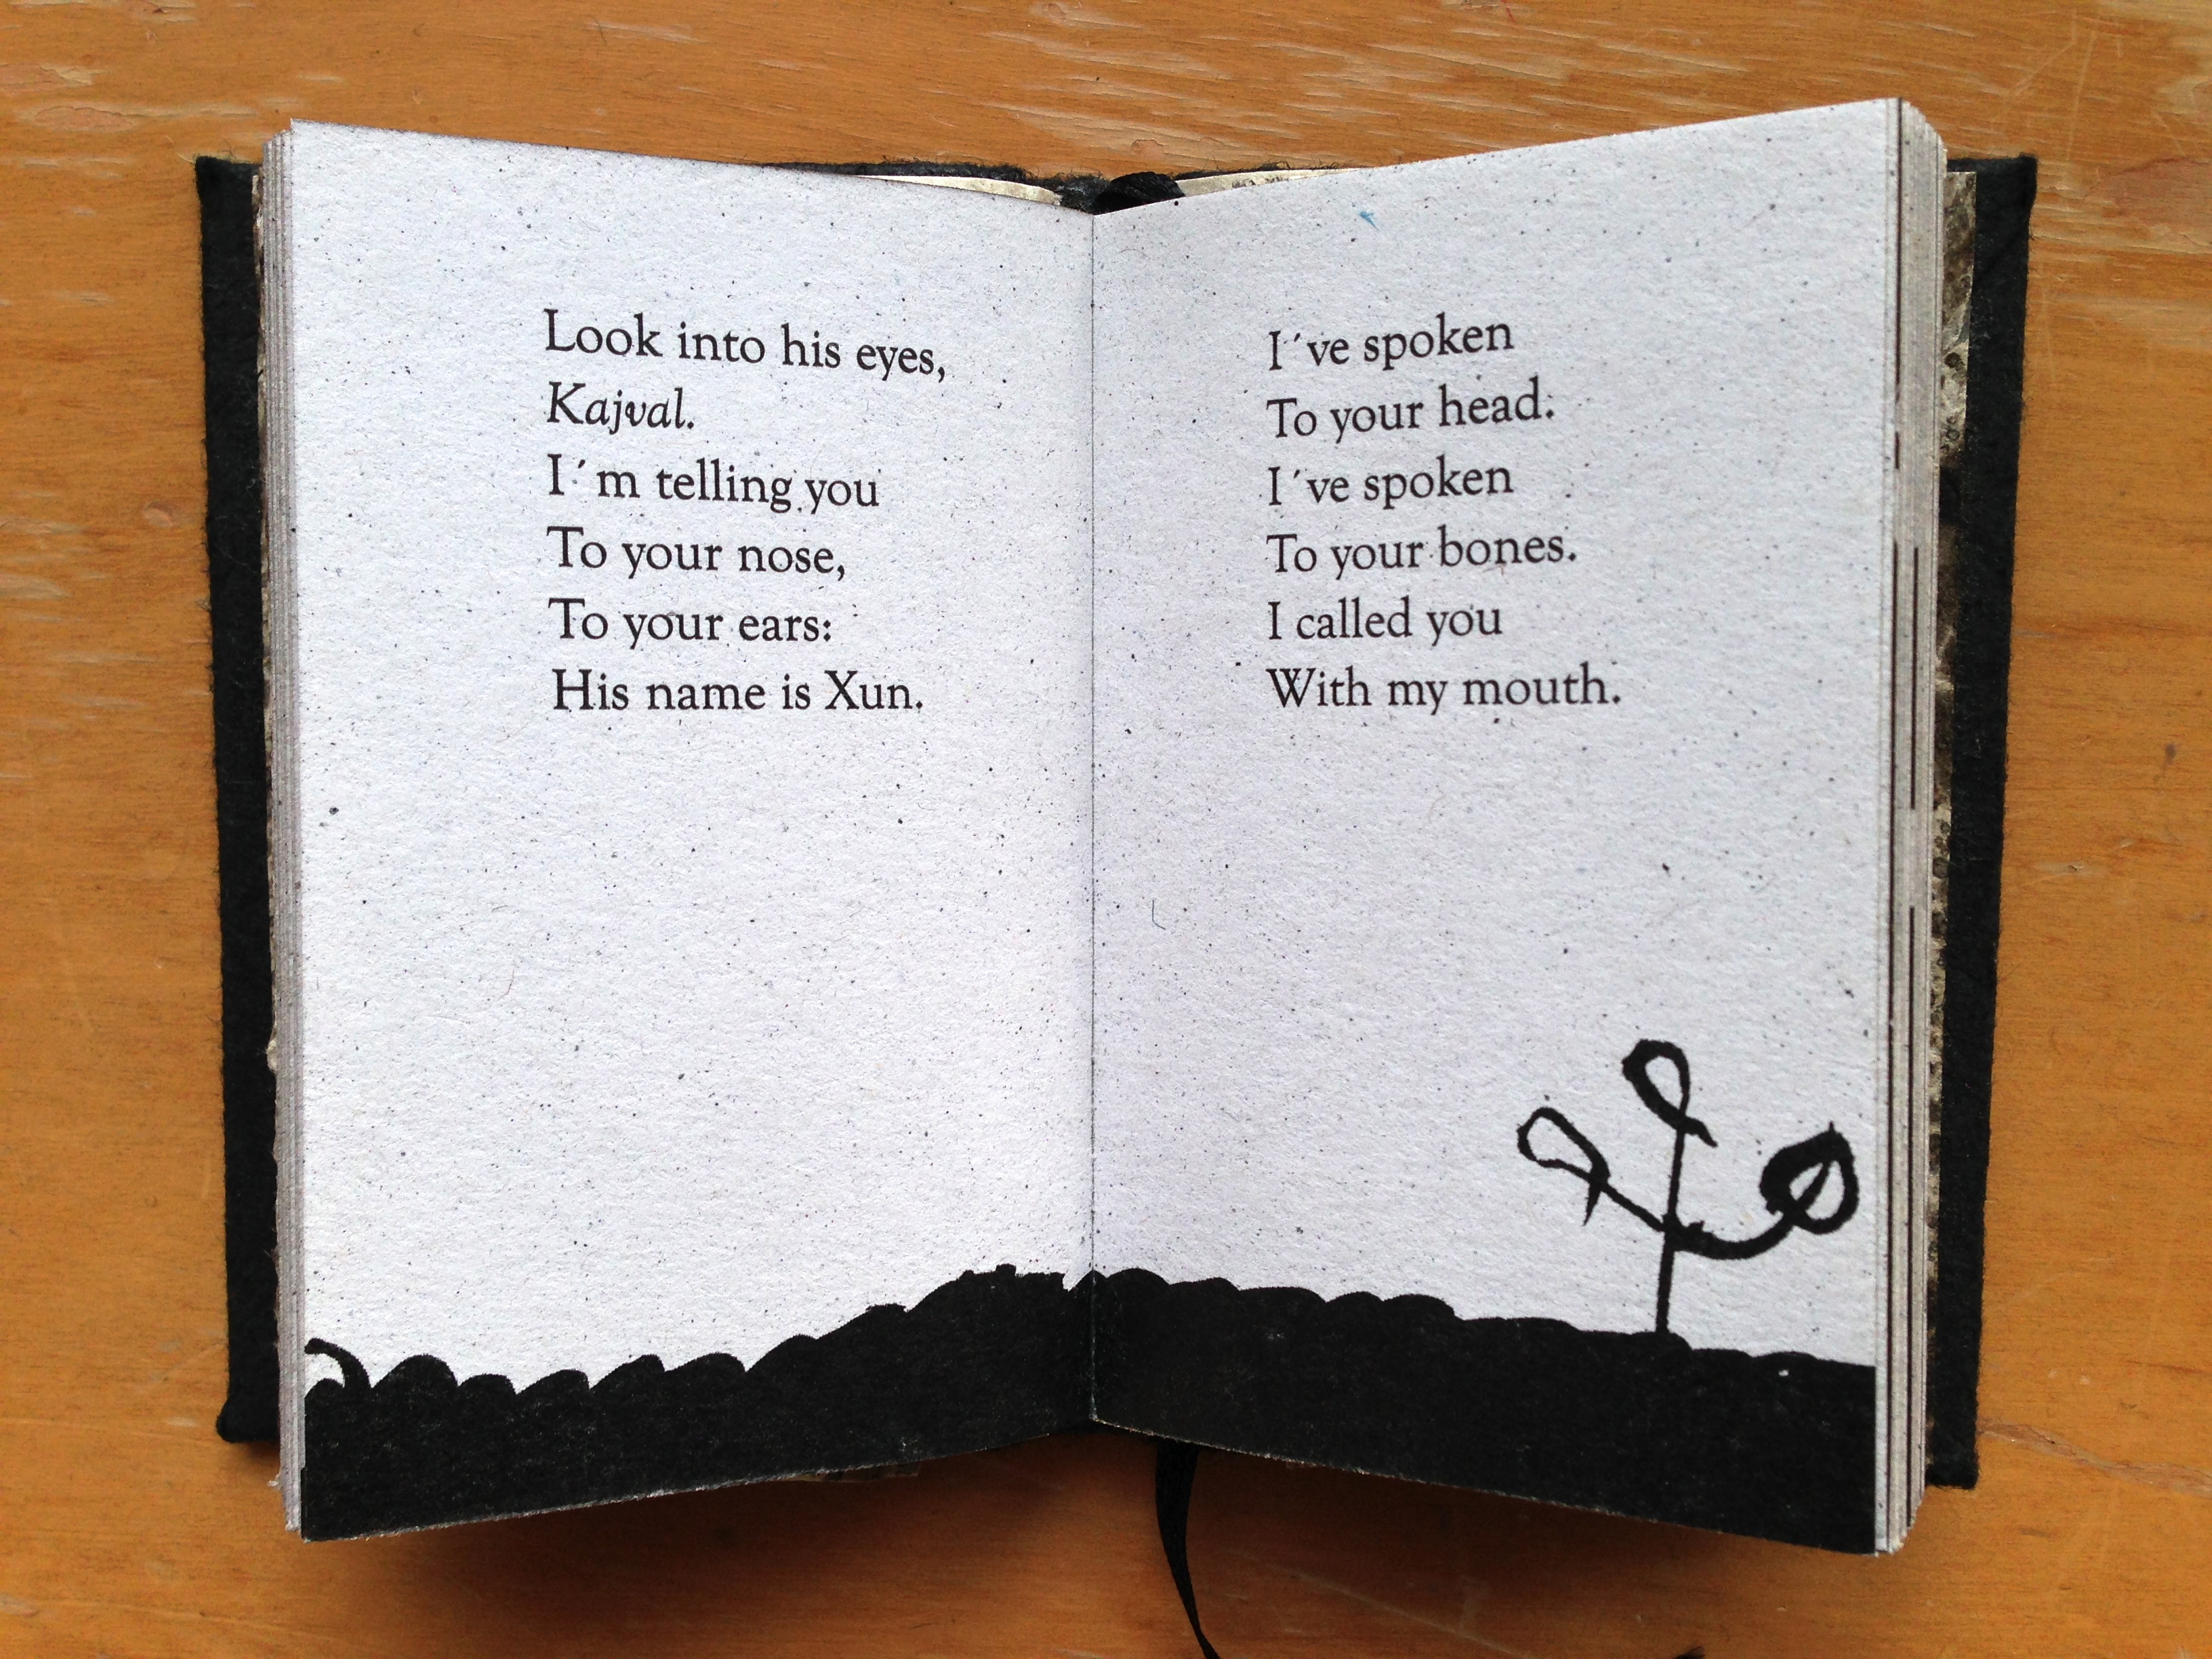 Look into his eyes,
Kajval.
I´m telling you
To your nose,
To your ears:
His name is Xun.
I´ve spoken
To your head.
I´ve spoken
To your bones.
I called you
With my mouth.